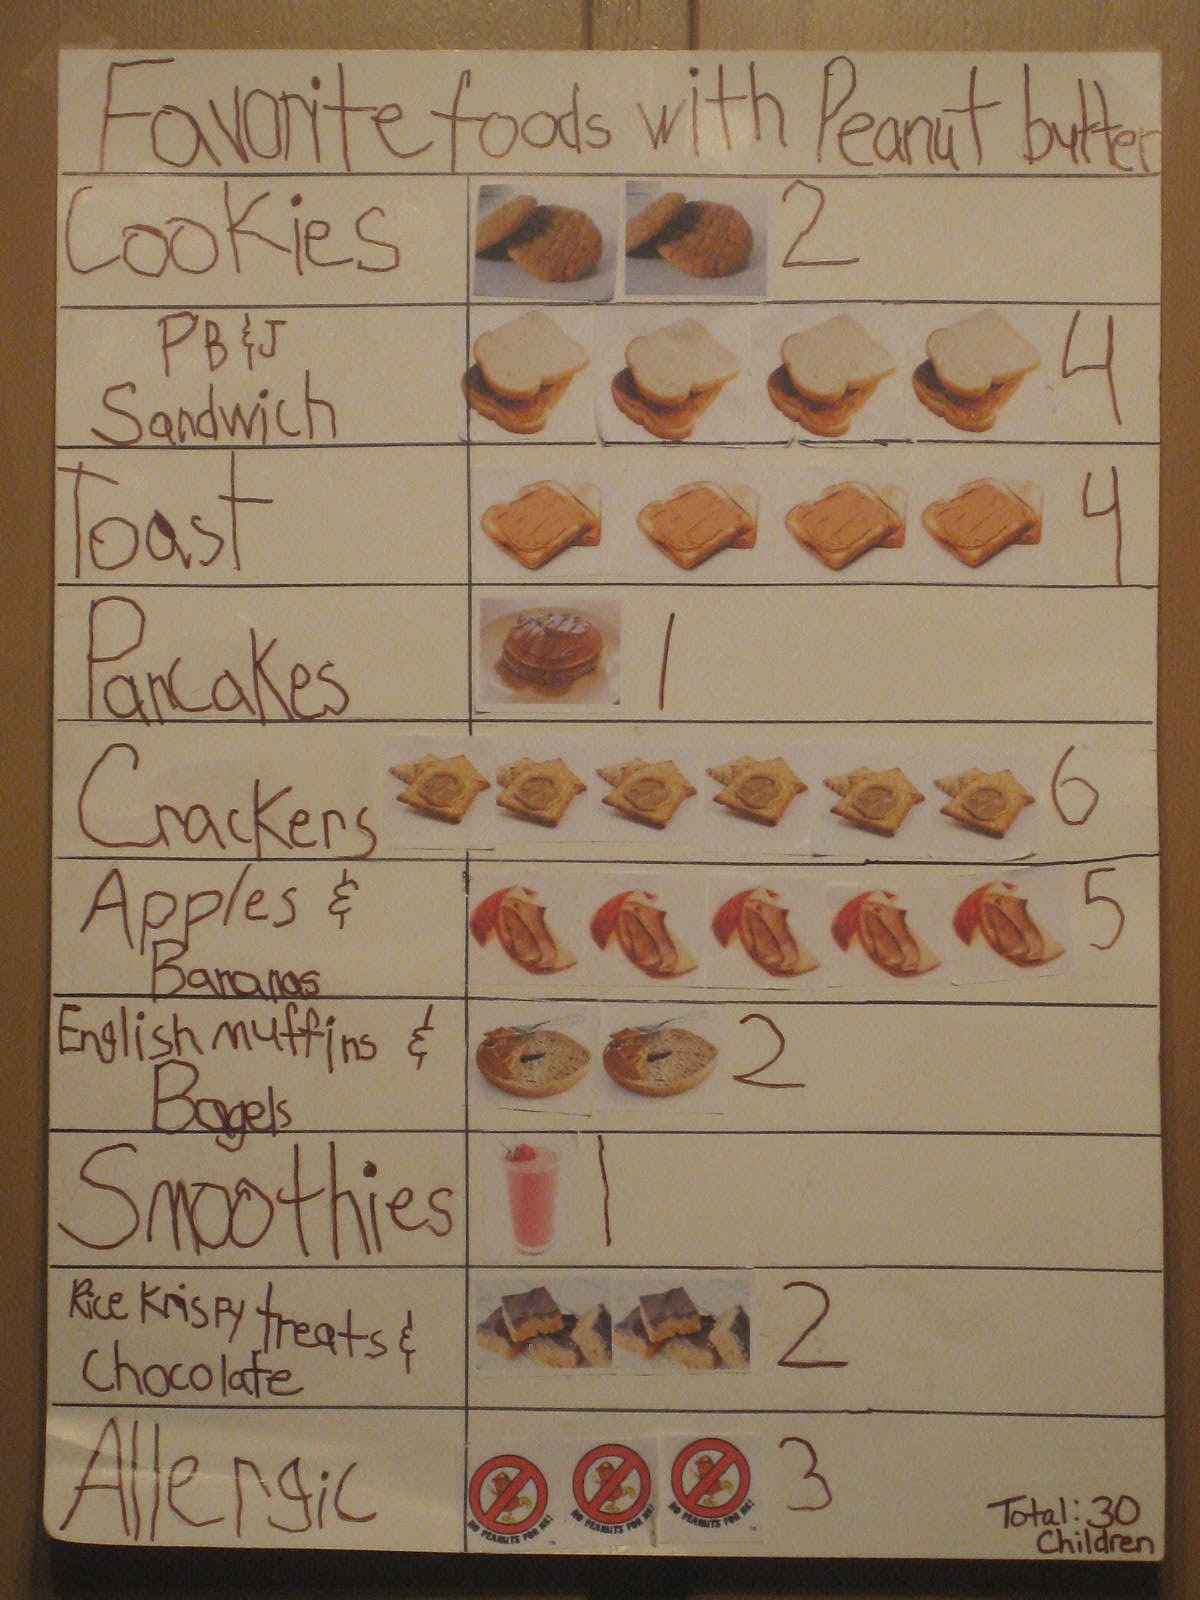 Favorite foods with Peanut butter
Cookies 2
PB&J
Sandwich 4
Toast 4
Pancakes 1
Crackers 6
Apples &
Bananas 5
English muffins &
Bagels 2
Smoothies 1
Rice Krispy treats &
Chocolate 2
Allergic 3
NO PEANUTS FOR ME!
NO PEANUTS FOR ME!
NO PEANUTS FOR ME!
Total: 30
Children